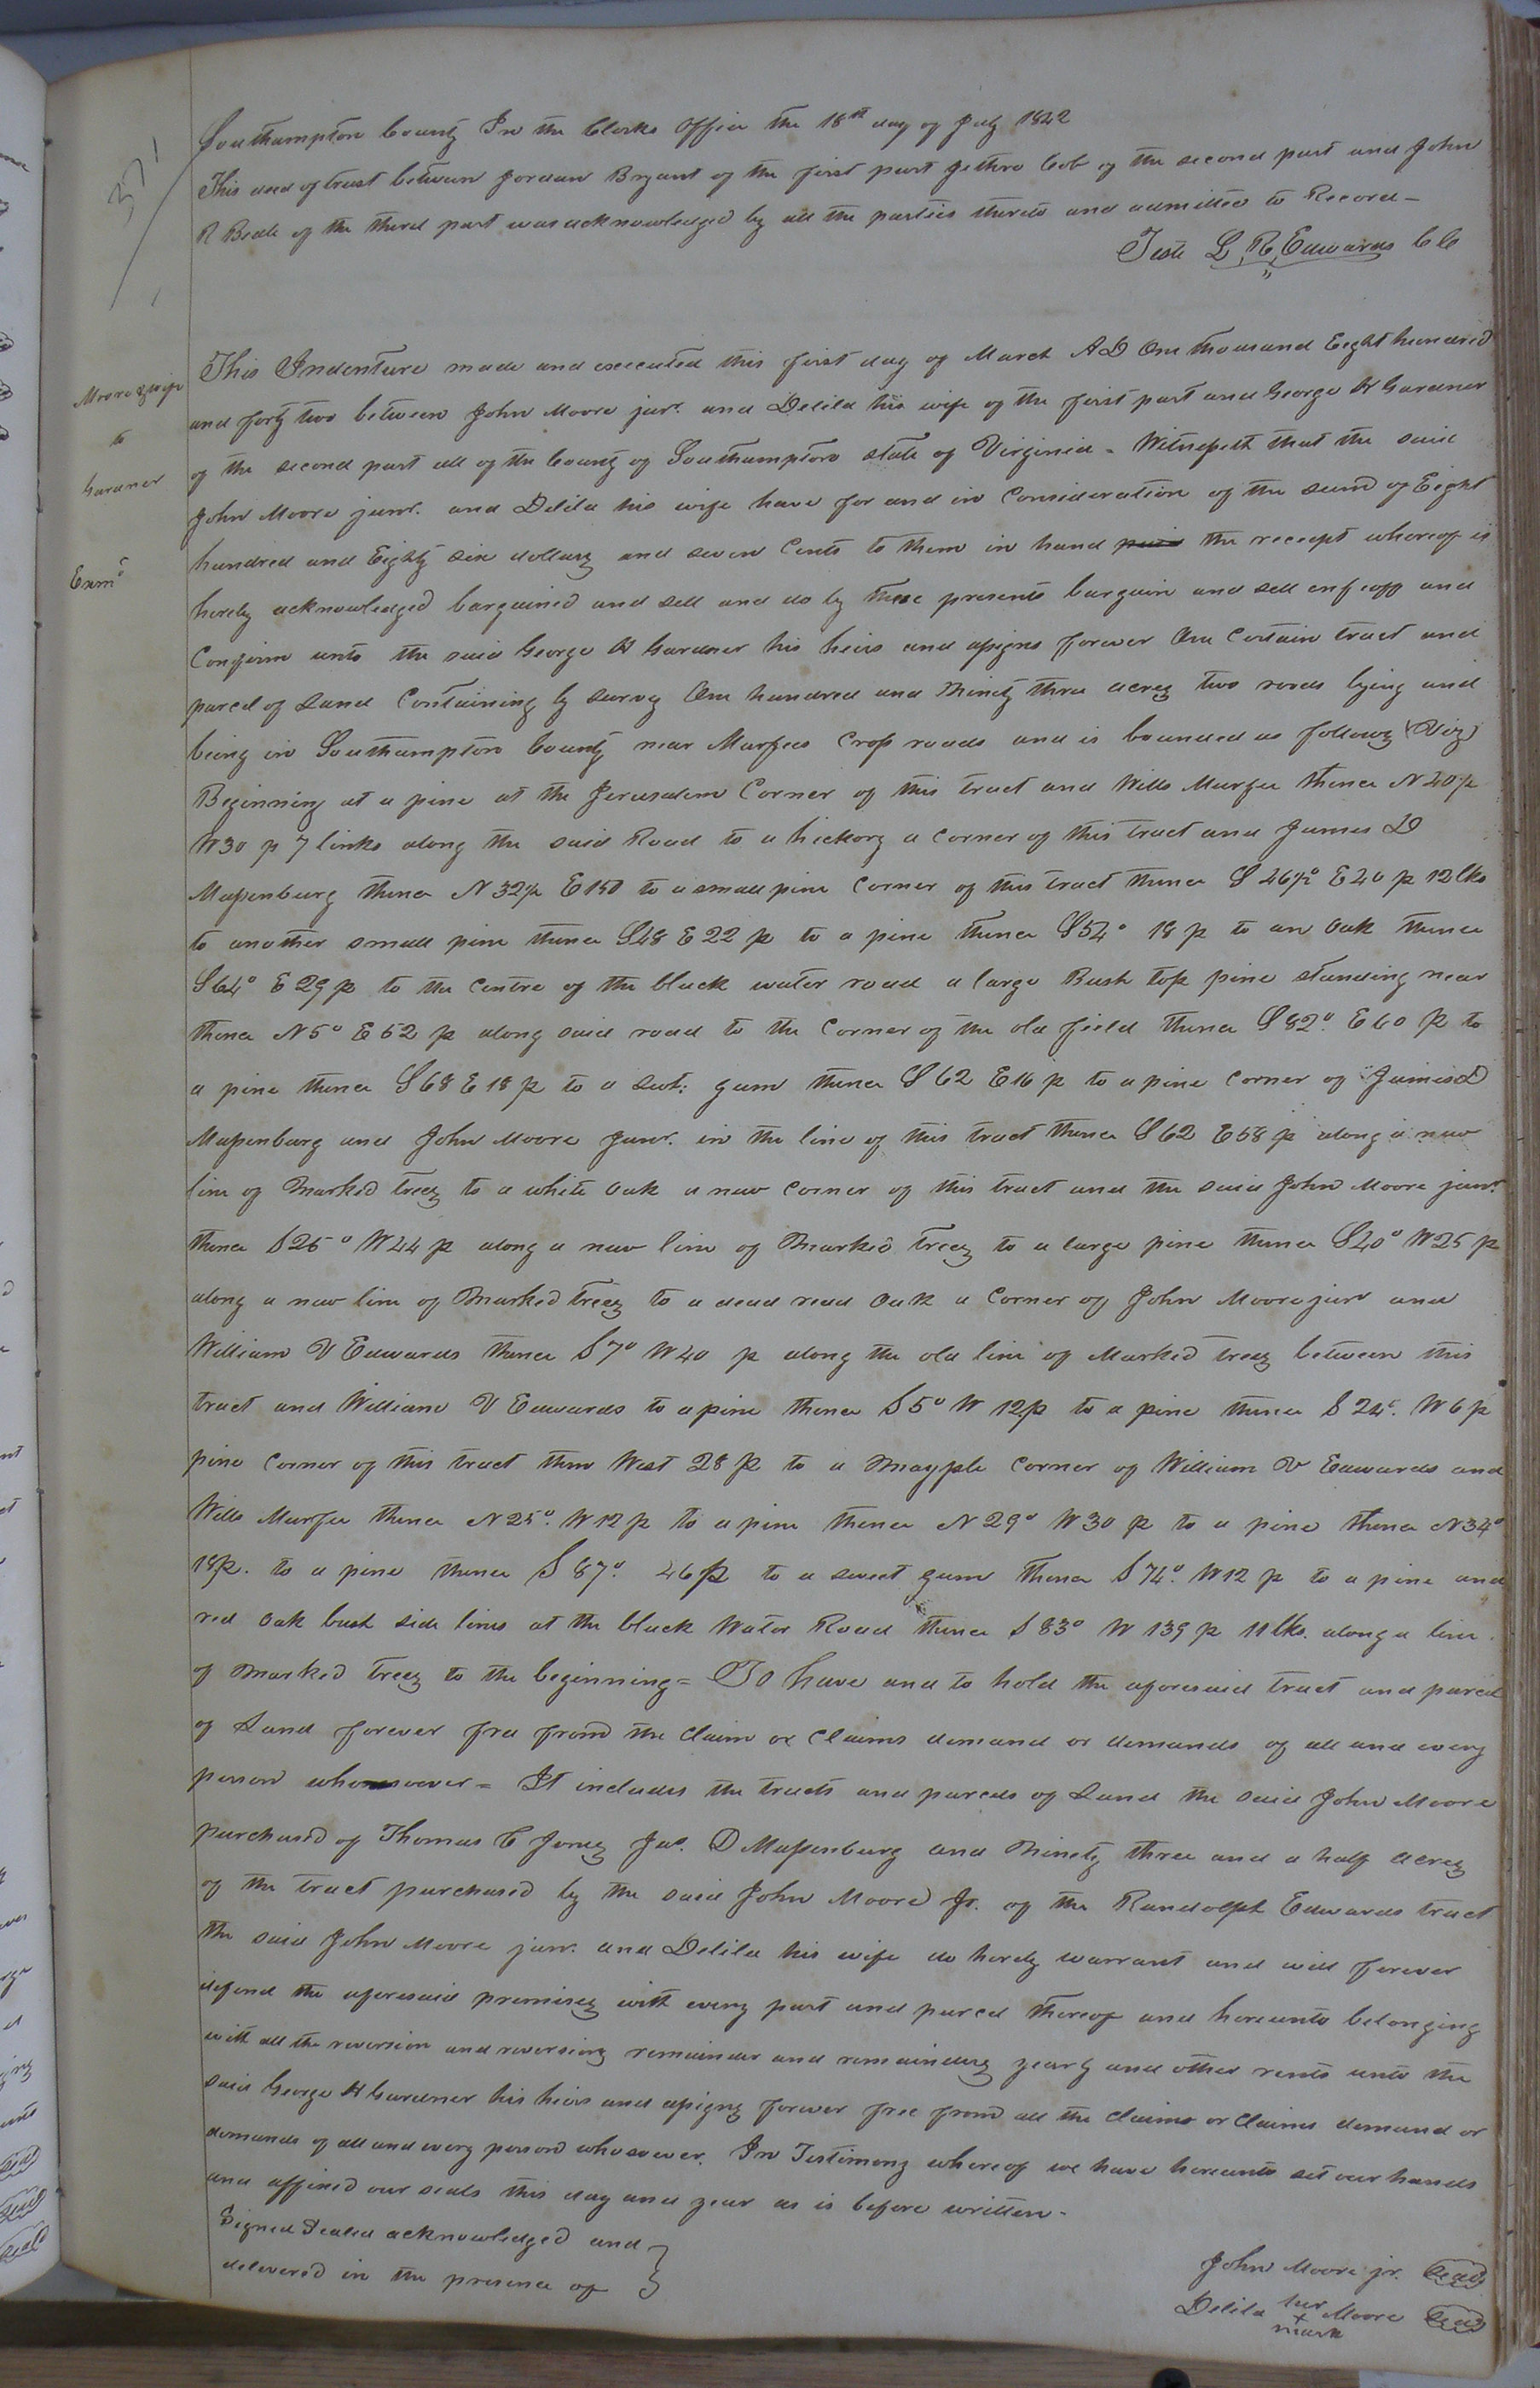 371
Southampton County In the Clerks Office the 18th day of July 1842
This deed of trust between Jordan Bryant of the first part Jethro Cob of the second part and John
R Beale of the third part was acknowledged by all the parties thereto and admitted to Record -
Teste L. R. Edwards CC
Moore & wife
to
Gardner
Exmd
This Indenture made and executed this first day of March AD One thousand Eight hundred
and forty two between John Moore junr. and Delila his wife of the first part and George H Gardner
of the second part all of the County of Southampton state of Virginia - Witnesseth that the said
John Moore junr. and Delila his wife have for and in Consideration of the sum of Eight
hundred and Eighty six dollars and seven Cents to them in hand paid the receipt whereof is
hereby acknowledged bargained and sell and do by these presents bargain and sell enfeoff and
Confirm unto the said George H Gardner his heirs and assigns forever One Certain tract and
parcel of Land Containing by survey One hundred and Ninety three acres two roods lying and
being in Southampton County near Murfees Cross roads and is bounded as follows (Viz)
Beginning at a pine at the Jerusalem Corner of this tract and Wills Murfee thence N 40½
W30 p 7 links along the said Road to a hickory a corner of this tract and James D
Massenburg thence N 32½ E 150 to a small pine Corner of this tract thence S 46½° E 40 p 12 lks
to another small pine thence S48 E 22 p to a pine thence S54° 18 p to an Oak thence
S64° E 29 p to the Centre of the black water road a large Bush top pine standing near
thence N5° E 52 p along said road to the Corner of the old field thence S 82° E 60 p to
a pine thence S68 E 18 p to a swt: gum thence S 62 E 16 p to a pine Corner of James D
Massenburg and John Moore Junr. in the line of this tract thence S 62 E 58 p along a new
line of Marked trees to a white Oak a new Corner of this tract and the said John Moore junr.
thence S25° W44 p along a new line of Marked trees to a large pine thence S40° W25 p
along a new line of Marked trees to a dead read Oak a Corner of John Moore junr and
William V Edwards thence S7° W 40 p along the old line of Marked trees between this
tract and William V Edwards to a pine thence S 5° W 12p to a pine thence S 24°. W 6 p
pine Corner of this tract then West 28 p to a Mayple Corner of William V Edwards and
Wills Murfee thence N 25°. W 12 p to a pine thence N 29° W 30 p to a pine thence N34°
18p. to a pine thence S 87°. 46p to a sweet gum thence S 74°. W12 p to a pine and
red Oak bush side lines at the black Water Road thence S 83° W 139 p 11 lks. along a line
of Marked trees to the beginning = To have and to hold the aforesaid tract and parcel
of Land forever free from the Claim or Claims demand or demands of all and every
person whomsoever = It includes the tracts and parcels of Land the said John Moore
purchased of Thomas C Jones Jas. D Massenburg and Ninety three and a half acres
of the tract purchased by the said John Moore Jr. of the Randolph Edwards tract
the said John Moore junr. and Delila his wife do hereby warrant and will forever
defend the aforesaid premises with every part and parcel thereof and hereunto belonging
with all the reversion and reversions remainder and remainders yearly and other rents unto the
said George H Gardner his heirs and assigns forever free from all the Claims or Claims demand or
demands of all and every person whosoever. In Testimony whereof we have hereunto set our hands
and affixed our seals this day and year as is before written -
Signed Sealed acknowledged and
delivered in the presence of
John Moore jr. Seal
Delila her + mark Moore Seal